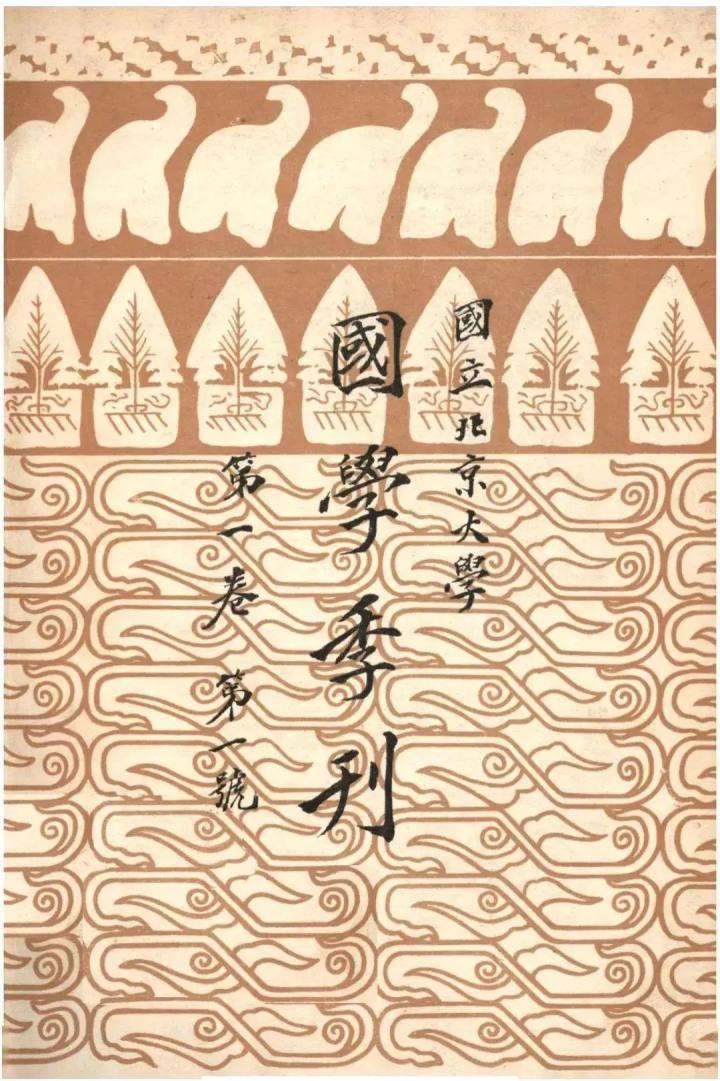 國立北京大學
國學季刊
第一卷 第一號